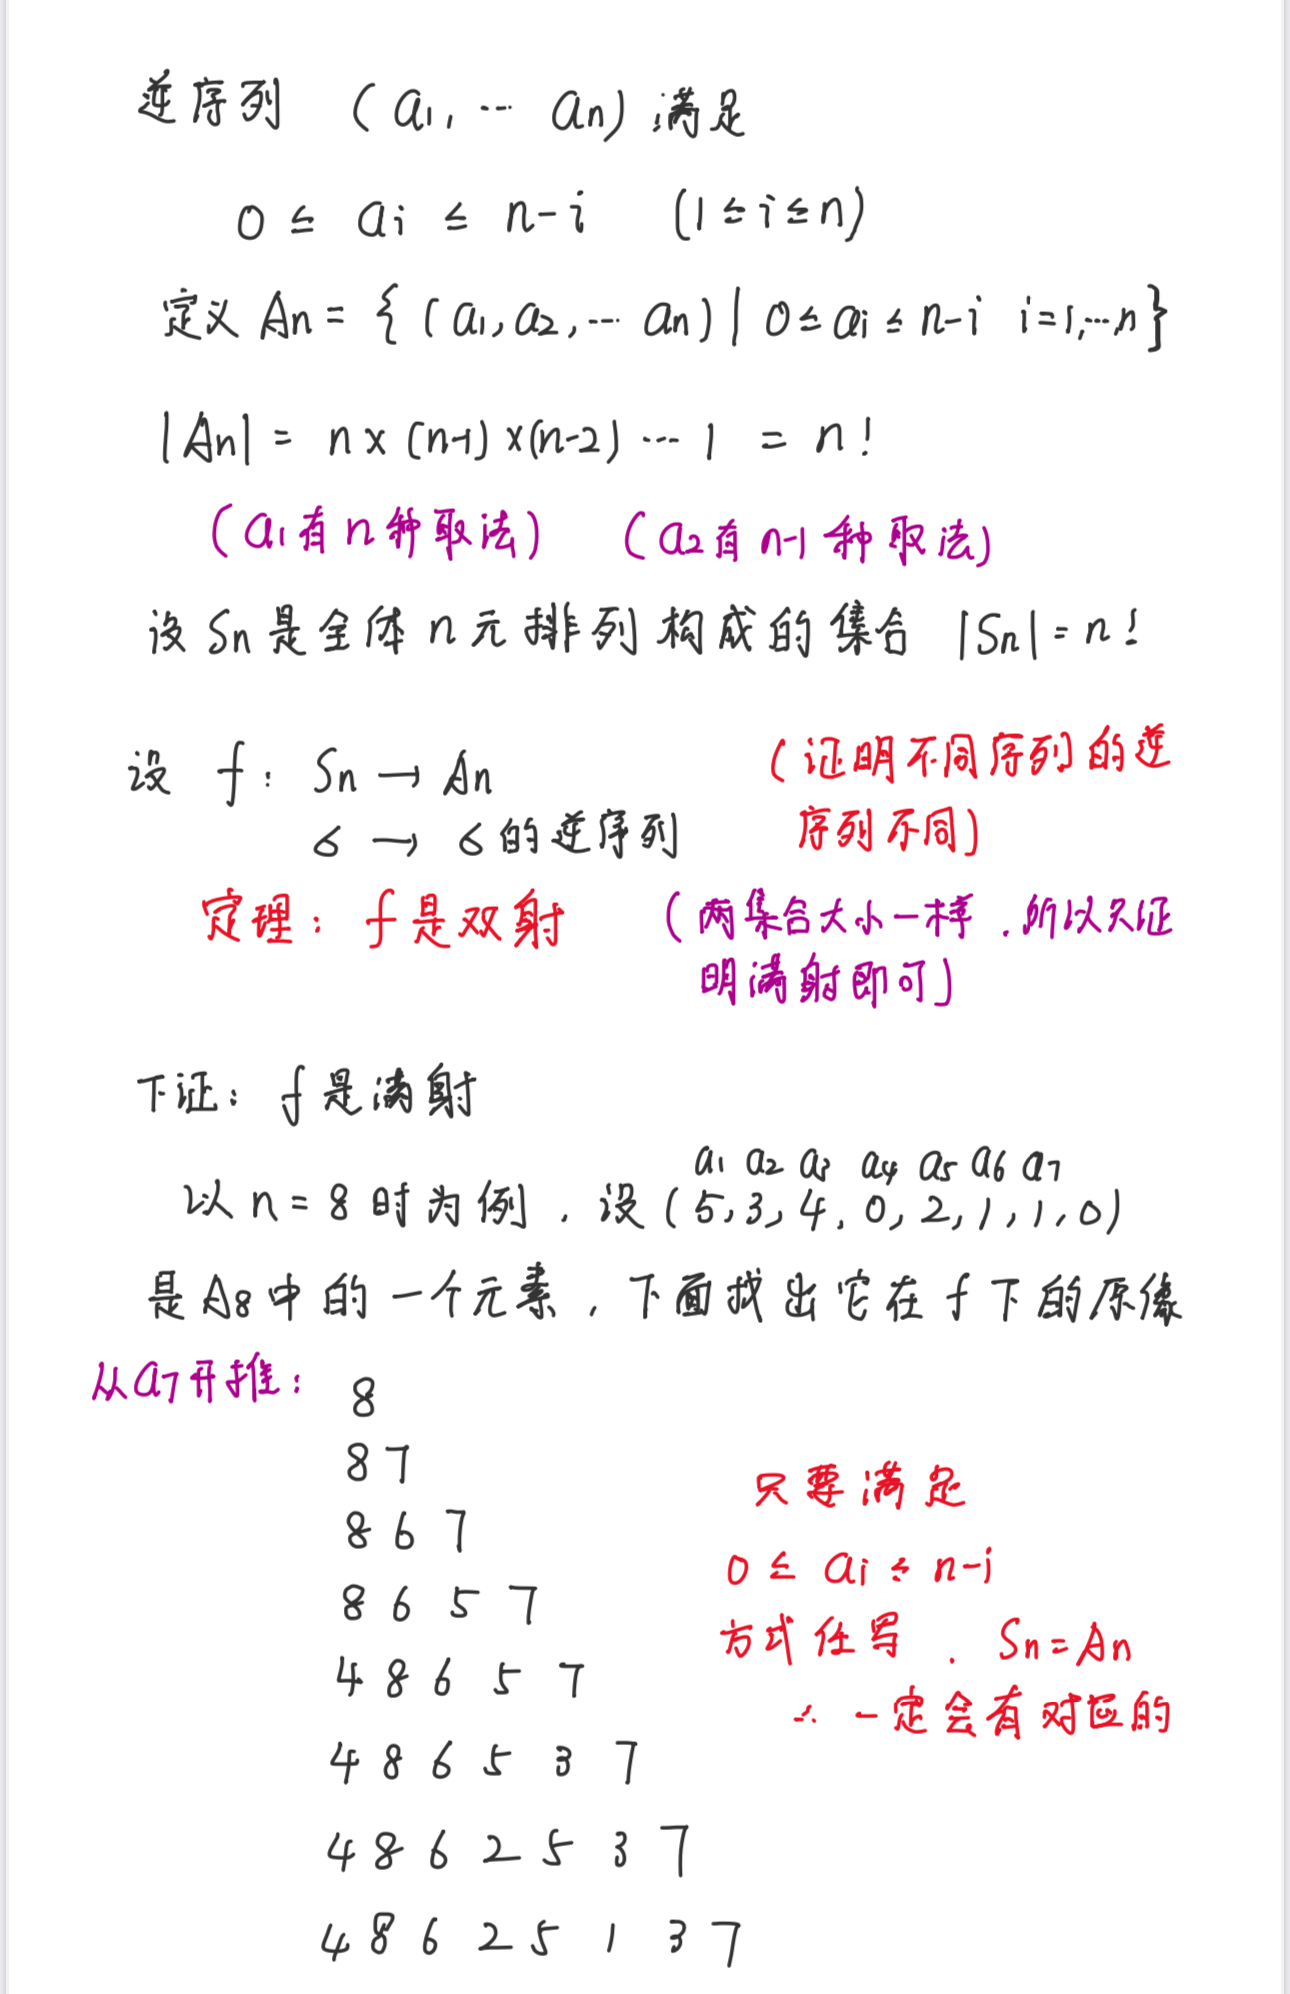 逆序列 (a₁, … aₙ) 满足
0 ≤ aᵢ ≤ n-i (1≤i≤n)
定义 Aₙ = { (a₁, a₂, … aₙ) | 0≤aᵢ≤n-i i=1,…n}
|Aₙ| = n×(n-1)×(n-2) … 1 = n!
(a₁有n种取法) (a₂有n-1种取法)
设Sₙ是全体n元排列构成的集合 |Sₙ|=n!
设 f: Sₙ → Aₙ
(证明不同序列的逆
序列不同)
σ → σ的逆序列
定理: f是双射
(两集合大小一样.所以只证
明满射即可)
下证: f是满射
a₁ a₂ a₃ a₄ a₅ a₆ a₇
以n=8时为例, 设(5,3,4,0,2,1,1,0)
是A₈中的一个元素, 下面找出它在f下的原像
从a₇开推:
8
87
8 6 7
8 6 5 7
4 8 6 5 7
4 8 6 5 3 7
4 8 6 2 5 3 7
4 8 6 2 5 1 3 7
只要满足
0 ≤ aᵢ ≤ n-i
方式任写. Sₙ=Aₙ
∴ 一定会有对应的